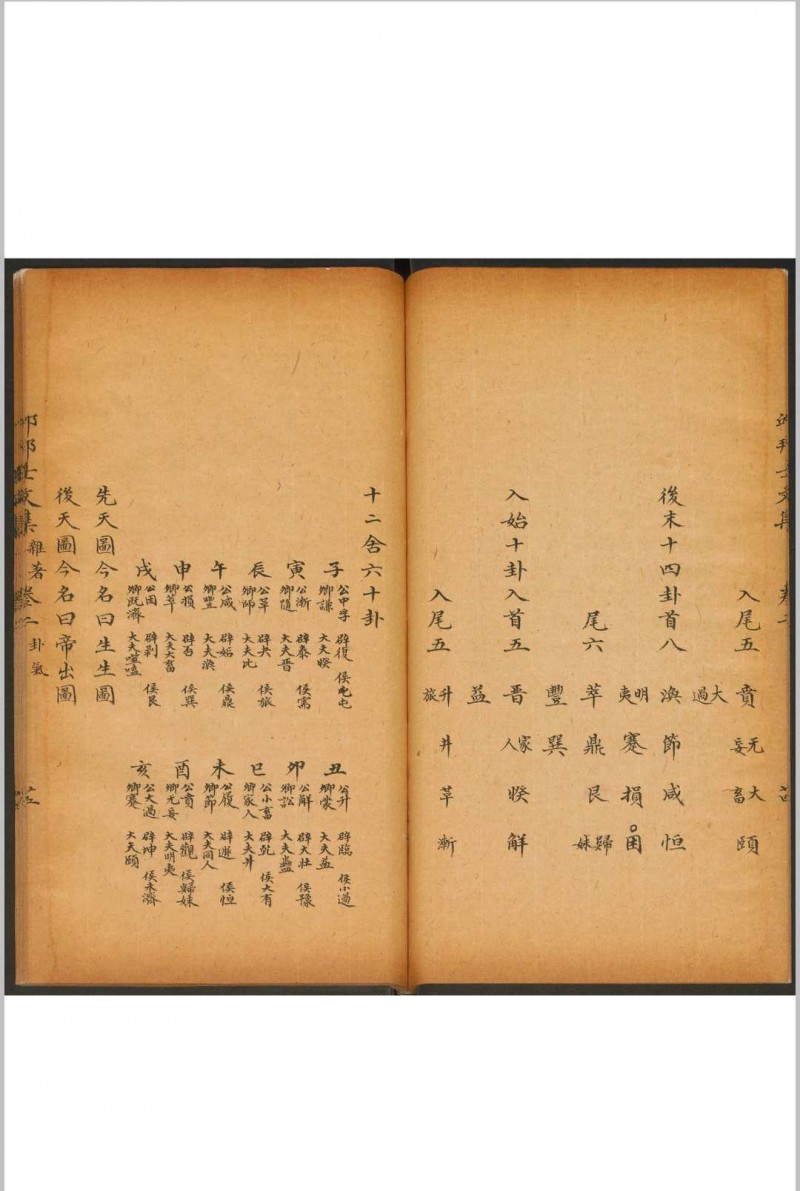 入尾五 賁 无妄 大畜 頤
大過
後末十四卦首八 渙 節 咸 恒
明夷 蹇 損 困
尾六 萃 鼎 艮 歸妹
豐 巽
入始十卦入首五 晉 家人 睽 解
益
入尾五 升旅 井 革 漸
十二舍六十卦
子 公中孚 辟復 侯屯屯 卿謙 大夫睽
丑 公升 辟臨 侯小過 卿蒙 大夫益
寅 公漸 辟泰 侯需 卿隨 大夫晉
卯 公解 辟大壯 侯豫 卿訟 大夫蠱
辰 公革 辟夬 侯旅 卿師 大夫比
巳 公小畜 辟乾 侯大有 卿家人 大夫井
午 公咸 辟姤 侯鼎 卿豐 大夫渙
未 公履 辟遯 侯恒 卿節 大夫同人
申 公損 辟否 侯巽 卿萃 大夫大畜
酉 公賁 辟觀 侯歸妹 卿无妄 大夫明夷
戌 公困 辟剝 侯艮 卿既濟 大夫噬嗑
亥 公大過 辟坤 侯未濟 卿蹇 大夫頤
先天圖今名曰生生圖
後天圖今名曰帝出圖
文集 雜著 卷二 卦氣